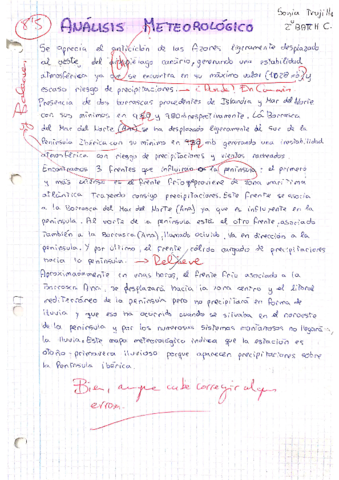 8'5
Sonia Trujillo
2º BATH C.
ANÁLISIS METEOROLÓGICO
Se aprecia el anticiclón de las Azores ligeramente desplazado
al oeste, del archipiélago canario, generando una estabilidad
atmosférica ya que se encuentra en su máximo valor (1028 mb) y
escaso riesgo de precipitaciones.
Presencia de dos borrascas procedentes de Islandia y Mar del Norte
con sus mínimos en y 980 respectivamente. La Borrasca
del Mar del Norte (Ana) se ha desplazado ligeramente al Sur de la
Península Ibérica con su mínimo en mb generando una inestabilidad
atmosférica con riesgo de precipitaciones y vientos moderados.
Encontramos 3 frentes que influirán en la península: el primero
y más es el frente frío que proviene de zona marítima
atlántica. Trayendo consigo precipitaciones. Este frente se asocia
a la Borrasca del Mar del Norte (Ana) ya que es influyente en la
península. Al norte de la península está el otro frente, asociado
también a la Borrasca (Ana), llamado ocluido, va en dirección a la
península. Y por último, el frente cálido cargado de precipitaciones
hacia la península. → Relieve
Aproximadamente en unas horas, el frente frío asociado a la
Borrasca Ana, se desplazará hacia la zona centro y el litoral
mediterráneo de la península pero no precipitará en forma de
lluvia y que esa ha ocurrido cuando se situaba en el noroeste
de la península y por los numerosos sistemas montañosos no llegará
la lluvia. Este mapa meteorológico indica que la estación es
otoño-primavera lluvioso porque aparecen precipitaciones sobre
la Península Ibérica.
Bien, aunque cabe corregir algún
error.